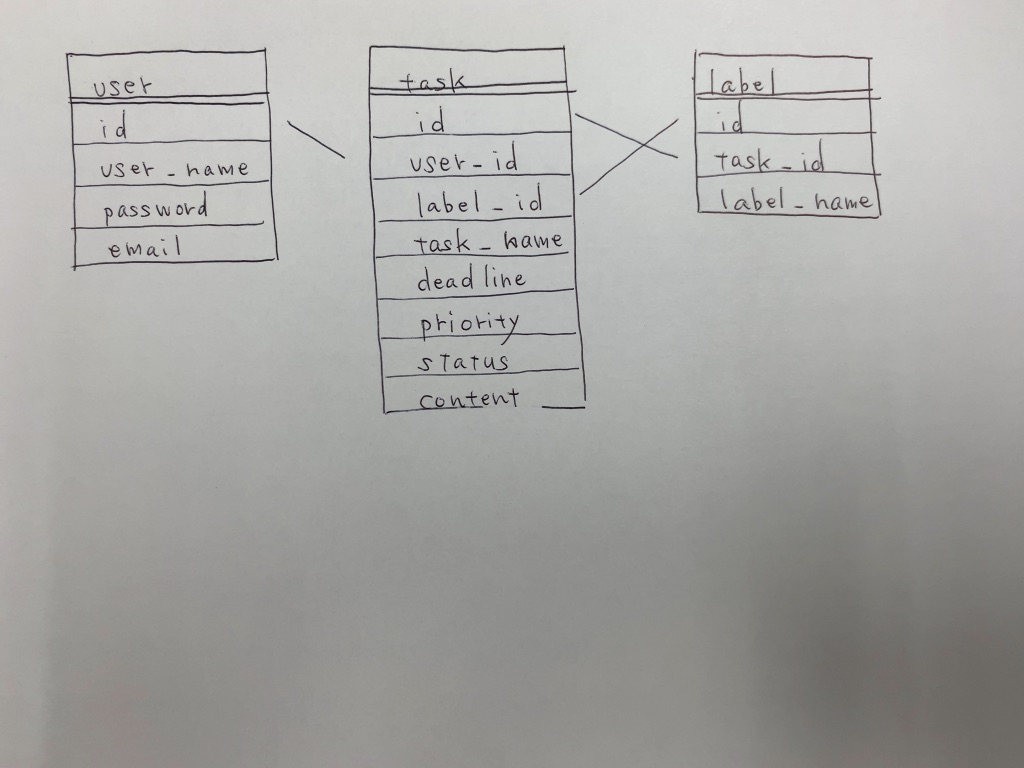 user
id
user_name
password
email
task
id
user_id
label_id
task_name
deadline
priority
status
content
label
id
task_id
label_name